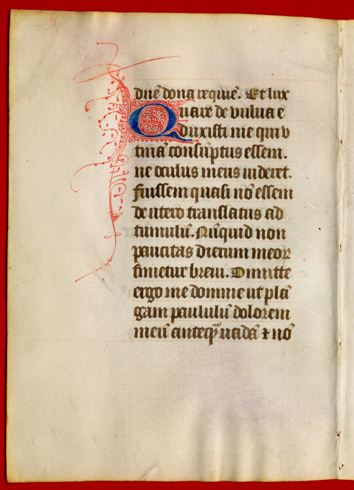 dnē dona requiē. Et lux
Quare de vulva e
duxisti me qui v
tinā consūptus essem.
ne oculus meus videret.
fuissem quasi nō essem
de utero translatus ad
tumulū. Nūquid non
paucitas dierum meoꝝ
finietur brevi. Dimitte
ergo me domine ut plā
gam paululū dolorem
meū anteqꝫ vadā ⁊ nō